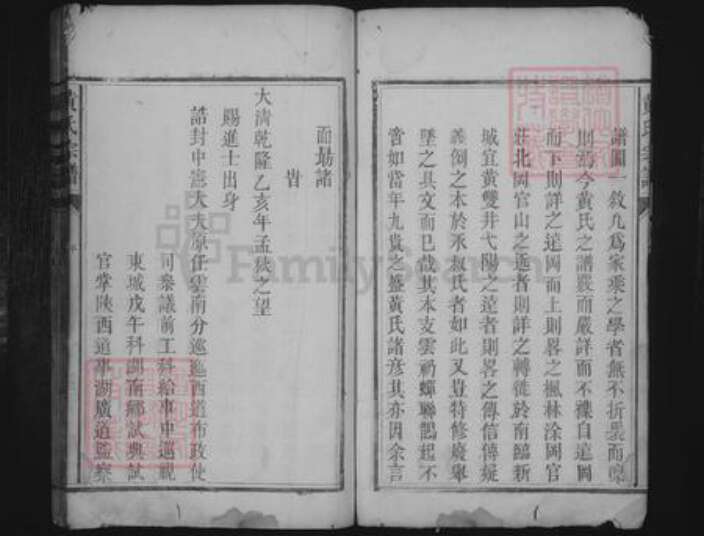 譜圖一敘凡為家乘之學者無不折衷而稟
則焉今黃氏之譜嚴而嚴詳而不襍自遠岡
而下則詳之遠岡而上則畧之楓林涂岡官
莊北岡官山之近者則詳之轉徙於南臨新
城宜黃雙井弋陽之遠者則畧之傳信傳疑
義例之本於永叔氏者如此又豈特修廢舉
墜之具文而已哉其本支雲礽蟬聯鵲起不
啻如當年九貴之盛黃氏諸彥其亦因余言
而朂諸
旹
大清乾隆乙亥年孟秋之望
賜進士出身
誥封中憲大夫原任雲南分巡迤西道布政使
司叅議前工科給事中巡視
東城戊午科湖南鄉試典試
官掌陝西道事湖廣道監察
黃氏宗譜
FamilySearch